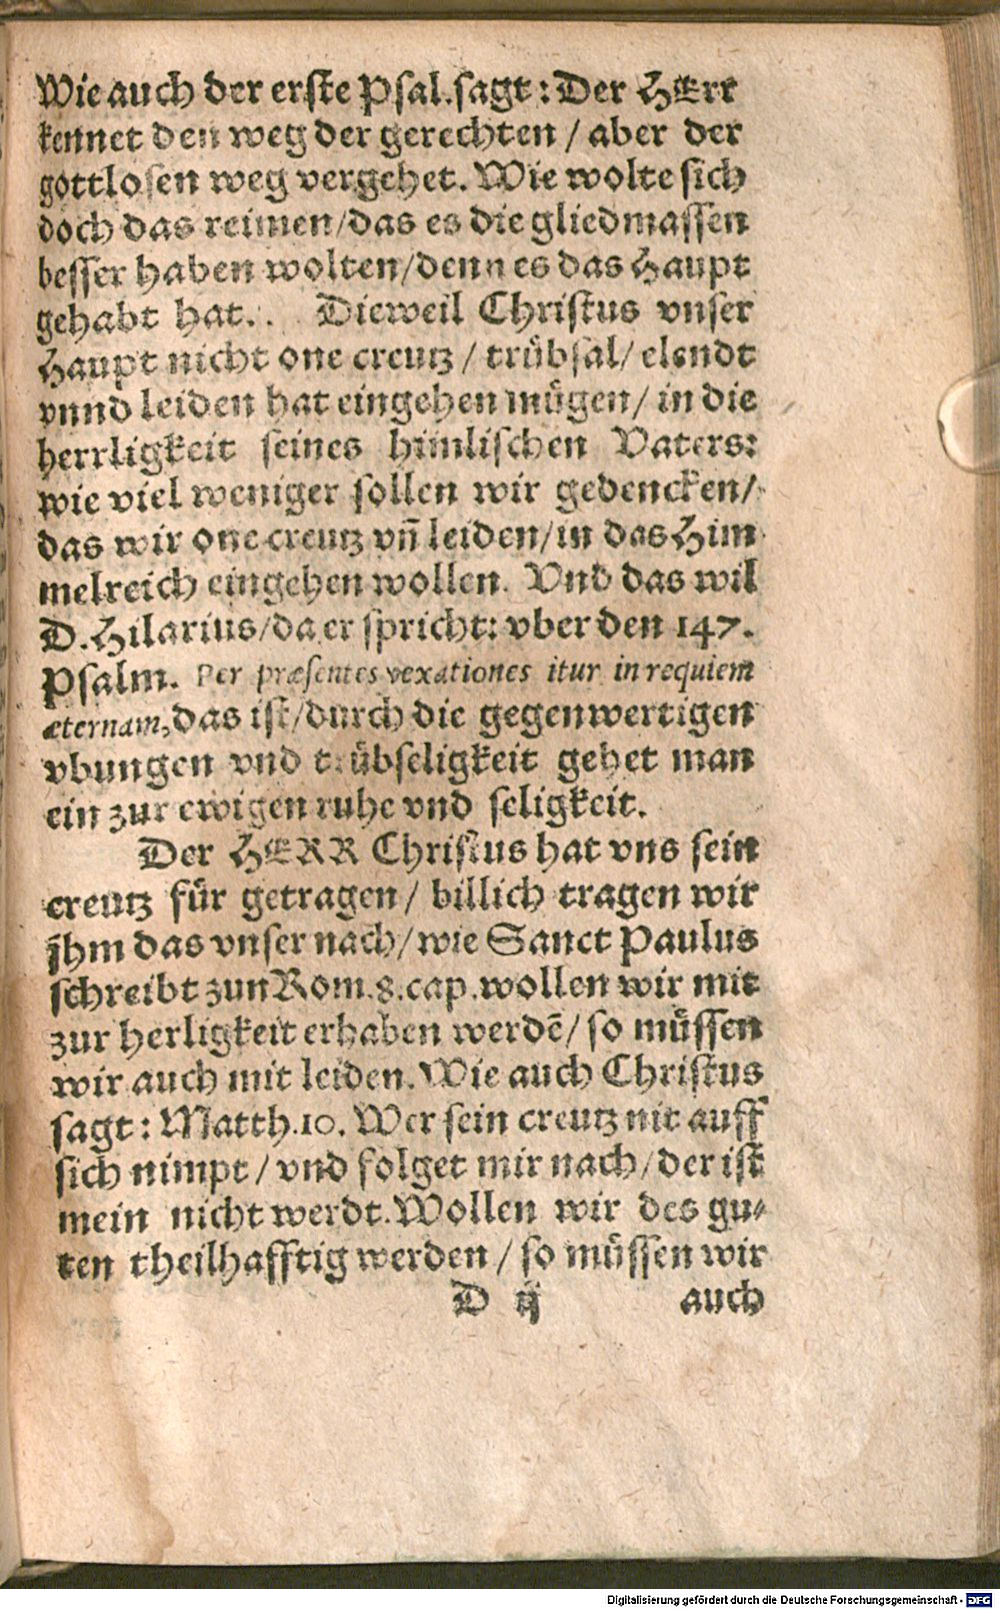 Wie auch der erste Psal. sagt: Der HErr
kennet den weg der gerechten / aber der
gottlosen weg vergehet. Wie wolte sich
doch das reimen / das es die gliedmassen
besser haben wolten / denn es das Haupt
gehabt hat. Dieweil Christus vnser
Haupt nicht one creutz / trübsal / elendt
vnnd leiden hat eingehen mügen / in die
herrligkeit seines himlischen Vaters:
wie viel weniger sollen wir gedencken /
das wir one creutz vñ leiden / in das Him
melreich eingehen wollen. Vnd das wil
D. Hilarius / da er spricht: vber den 147.
Psalm. Per præsentes vexationes itur in requiem
æternam, das ist / durch die gegenwertigen
vbungen vnd trübseligkeit gehet man
ein zur ewigen ruhe vnd seligkeit.
Der HERR Christus hat vns sein
creutz für getragen / billich tragen wir
jhm das vnser nach / wie Sanct Paulus
schreibt zun Rom. 8. cap. wollen wir mit
zur herligkeit erhaben werdē / so müssen
wir auch mit leiden. Wie auch Christus
sagt: Matth. 10. Wer sein creutz nit auff
sich nimpt / vnd folget mir nach / der ist
mein nicht werdt. Wollen wir des gu-
ten theilhafftig werden / so müssen wir
D ij auch
Digitalisierung gefördert durch die Deutsche Forschungsgemeinschaft - DFG